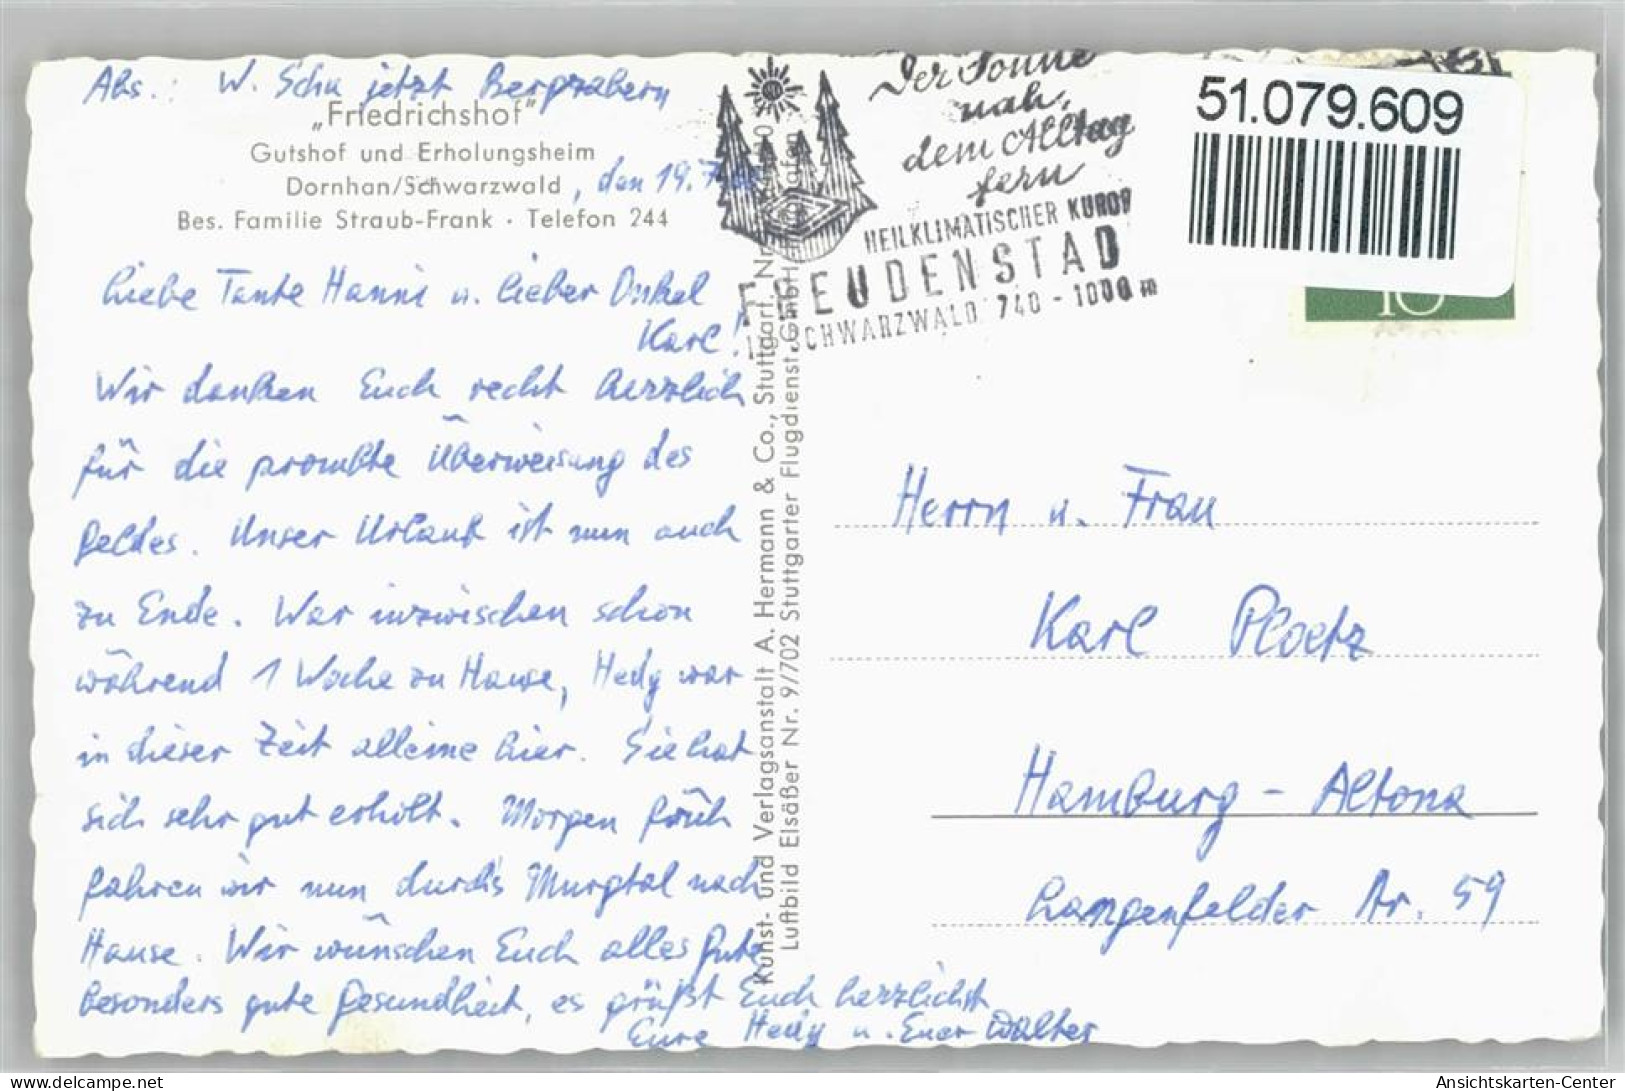 Abs.: W. Scha jetzt Bergzabern
„Friedrichshof"
Gutshof und Erholungsheim
Dornhan/Schwarzwald, den 19.7.
Bes. Familie Straub-Frank · Telefon 244
Liebe Tante Hanni u. lieber Onkel
Karl!
Wir danken Euch recht herzlich
für die prombte Überweisung des
Geldes. Unser Urlaub ist nun auch
zu Ende. War inzwischen schon
während 1 Woche zu Hause, Hedy war
in dieser Zeit alleine hier. Sie hat
sich sehr gut erholt. Morgen früh
fahren wir nun durch's Murgtal nach
Hause. Wir wünschen Euch alles Gute
besonders gute Gesundheit, es grüßt Euch herzlichst
Eure Hedy u. Euer Walter
Kunst- und Verlagsanstalt A. Hermann & Co., Stuttgart, Nr.
Luftbild Elsäßer Nr. 9/702 Stuttgarter Flugdienst GmbH
Der Sonne
nah,
dem Alltag
fern
HEILKLIMATISCHER KUROR
FREUDENSTAD
SCHWARZWALD 740 - 1000 m
51.079.609
10
Herrn u. Frau
Karl Ploetz
Hamburg - Altona
Langenfelder Str. 59
Ansichtskarten-Center
www.delcampe.net